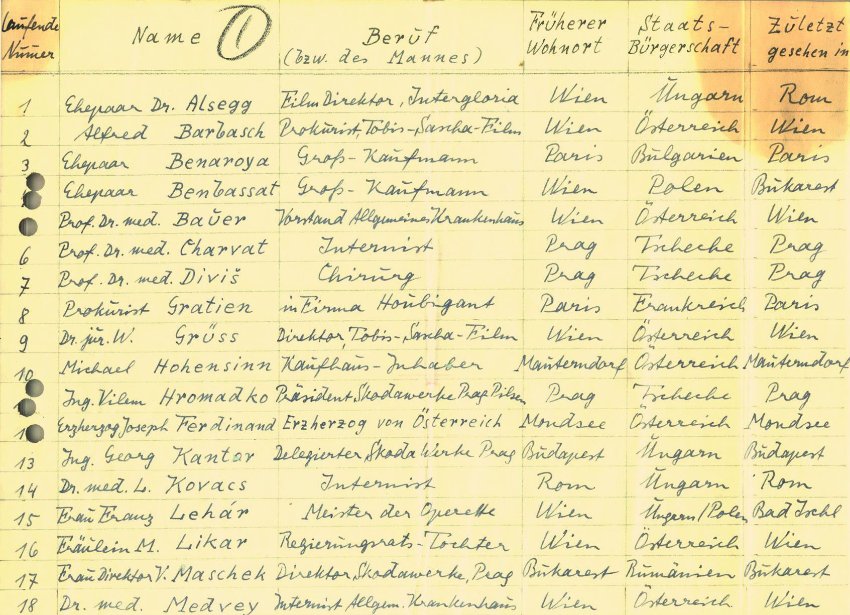 Laufende Numer Name (1) Beruf (bzw. des Mannes) Früherer Wohnort Staats-Bürgerschaft Zuletzt gesehen in
1 Ehepaar Dr. Alsegg Film Direktor, Intergloria Wien Ungarn Rom
2 Alfred Barbasch Prokurist, Tobis-Sascha-Film Wien Österreich Wien
3 Ehepaar Benaroya Groß-Kaufmann Paris Bulgarien Paris
Ehepaar Benbassat Groß-Kaufmann Wien Polen Bukarest
Prof. Dr. med. Bauer Vorstand Allgemeines Krankenhaus Wien Österreich Wien
6 Prof. Dr. med. Charvat Internist Prag Tscheche Prag
7 Prof. Dr. med. Diviš Chirurg Prag Tscheche Prag
8 Prokurist Gratien in Firma Houbigant Paris Frankreich Paris
9 Dr. jur. W. Grüss Direktor, Tobis-Sascha-Film Wien Österreich Wien
10 Michael Hohensinn Kaufhaus-Inhaber Mauterndorf Österreich Mauterndorf
1 Ing. Vilem Hromadko Präsident Skodawerke, Prag Pilsen Prag Tscheche Prag
1 Erzherzog Joseph Ferdinand Erzherzog von Österreich Mondsee Österreich Mondsee
13 Ing. Georg Kantor Delegierter Skoda Werke Prag Budapest Ungarn Budapest
14 Dr. med. L. Kovacs Internist Rom Ungarn Rom
15 Frau Franz Lehár Meister der Operette Wien Ungarn/Polen Bad Ischl
16 Fräulein M. Likar Regierungsrats-Tochter Wien Österreich Wien
17 Frau Direktor V. Maschek Direktor, Skodawerke, Prag Bukarest Rumänien Bukarest
18 Dr. med. Medvey Internist Allgem. Krankenhaus Wien Österreich Wien